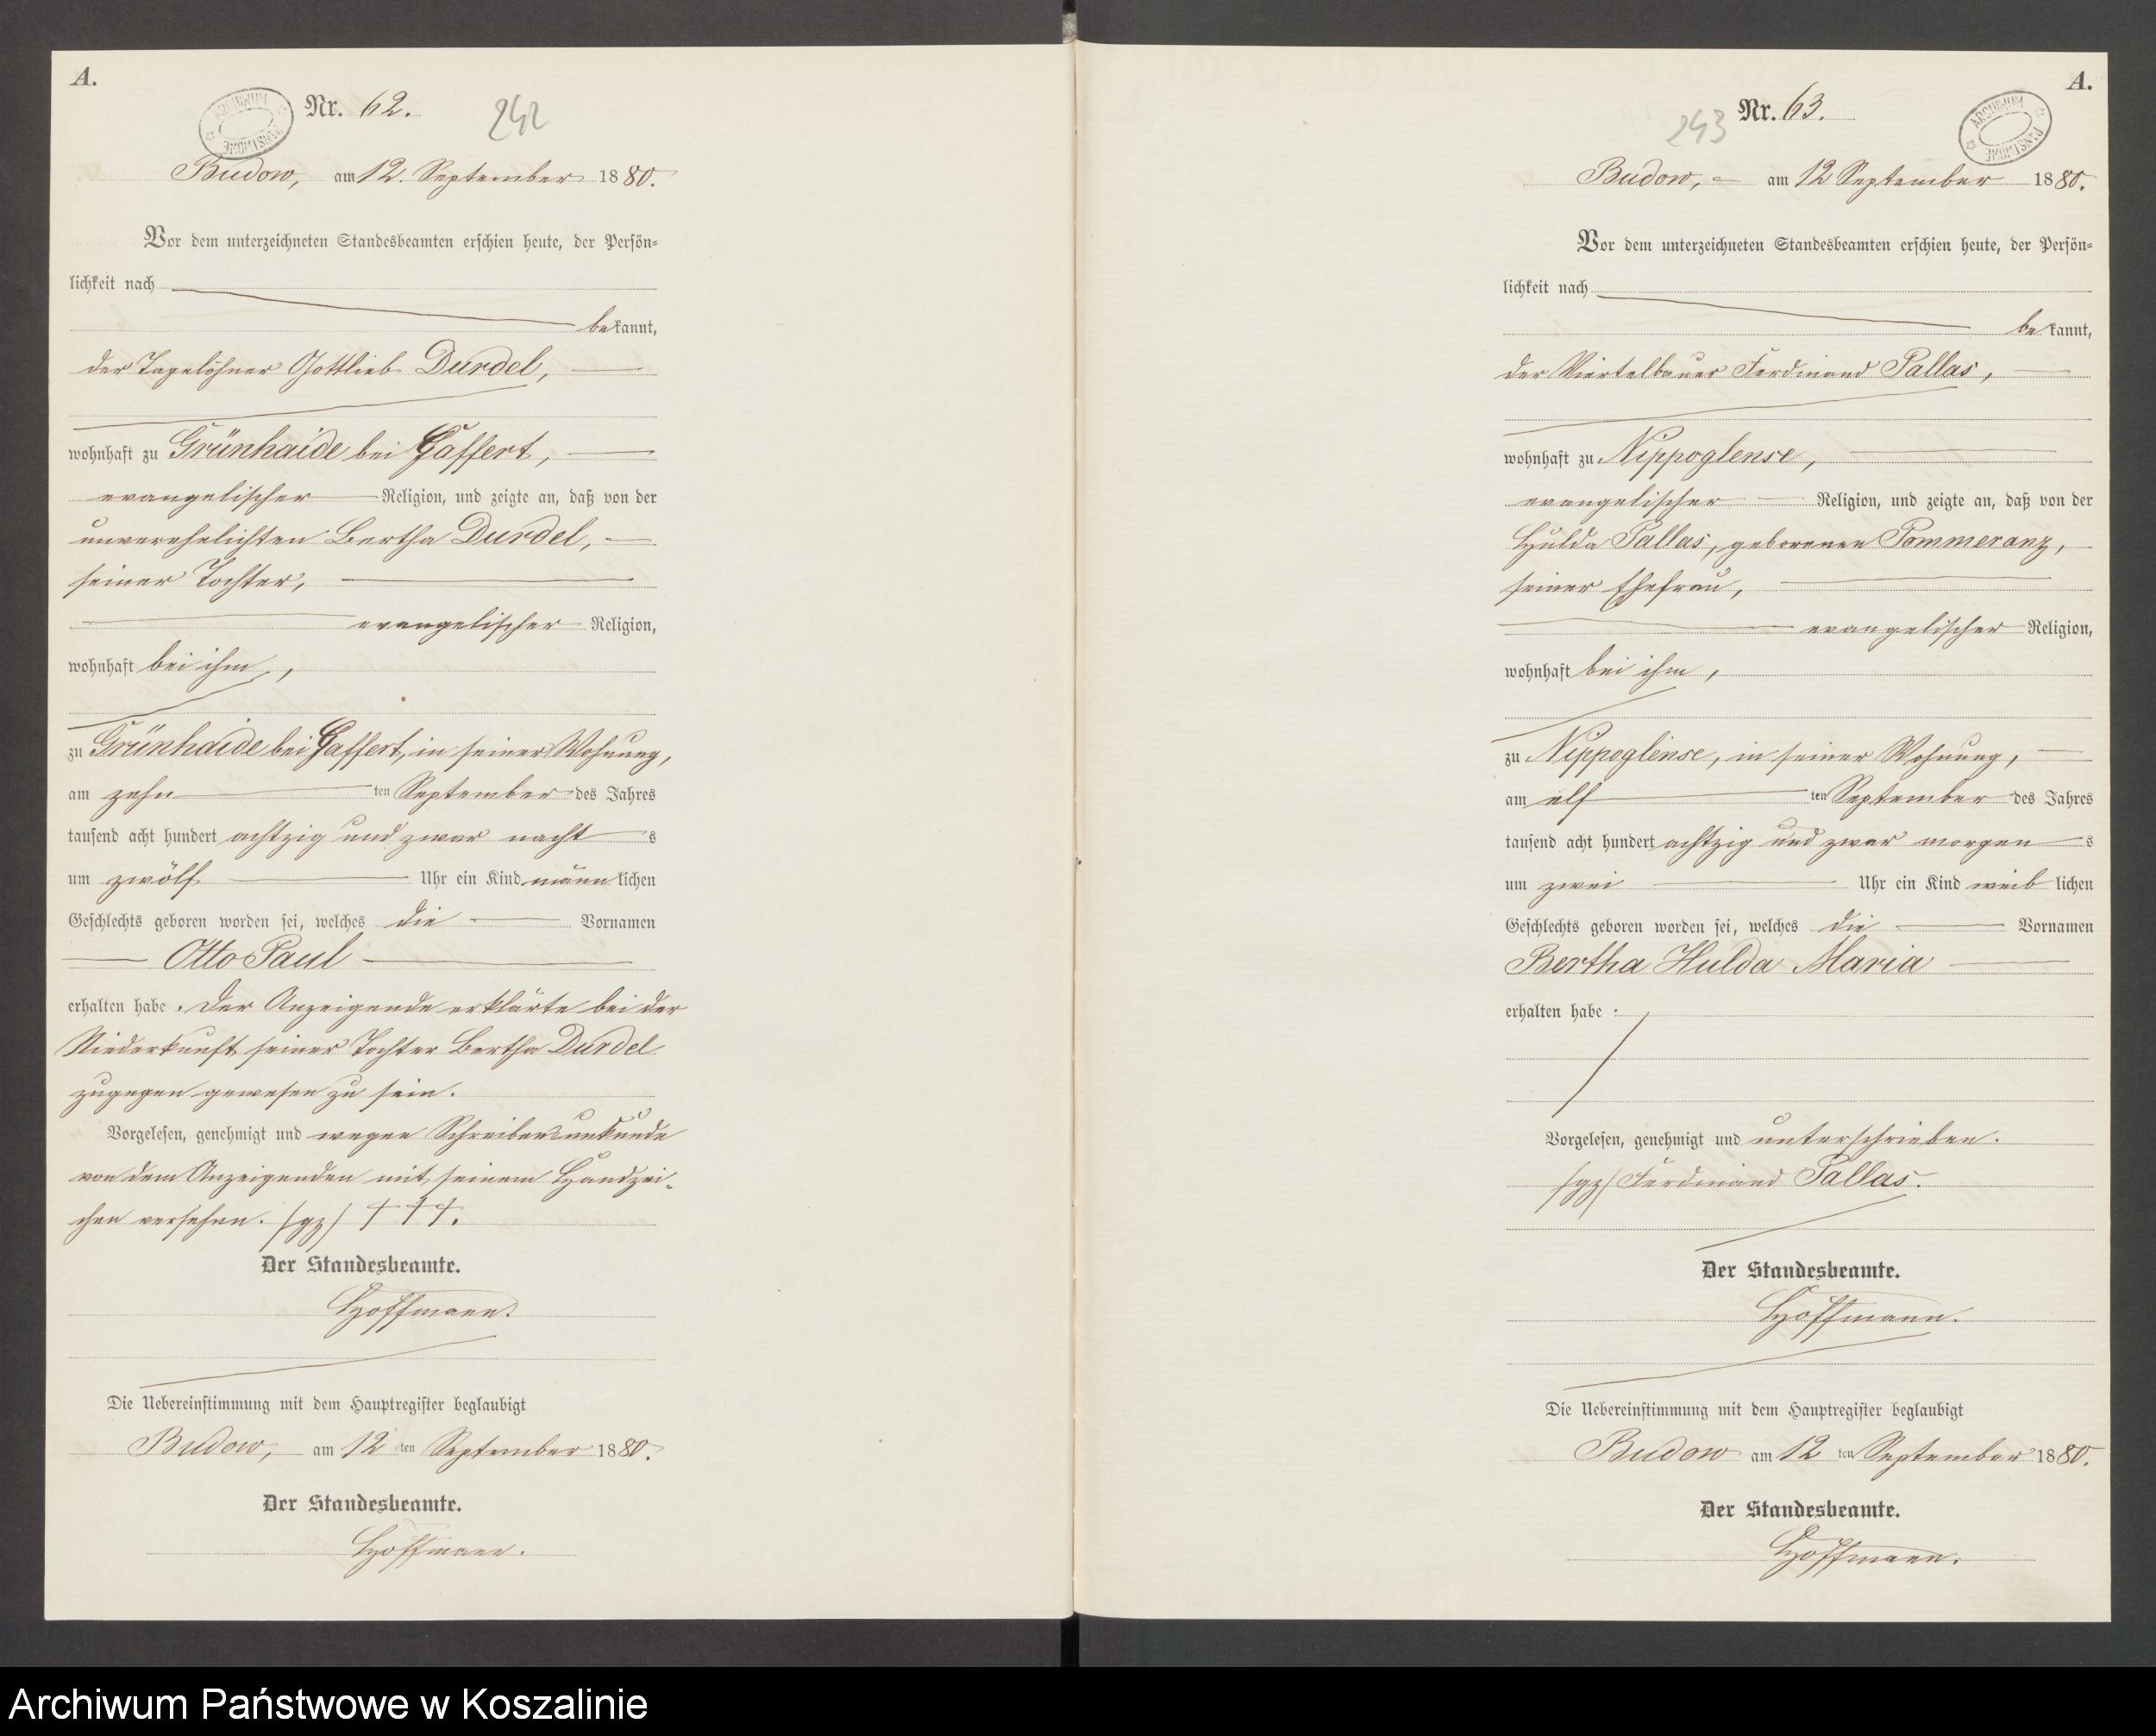 A.
ARCHIWUM PAŃSTWOWE
Nr. 62.
242
Budow, am 12. September 1880.
Vor dem unterzeichneten Standesbeamten erschien heute, der Persön=
lichkeit nach
bekannt,
der Tagelöhner Gottlieb Durdel,
wohnhaft zu Grünhaide bei Gaffert,
evangelischer Religion, und zeigte an, daß von der
unverehelichten Bertha Durdel,
seiner Tochter,
evangelischer Religion,
wohnhaft bei ihm,
zu Grünhaide bei Gaffert, in seiner Wohnung,
am zehn ten September des Jahres
tausend acht hundert achtzig und zwar nacht s
um zwölf Uhr ein Kind männlichen
Geschlechts geboren worden sei, welches die Vornamen
Otto Paul
erhalten habe. Der Anzeigende erklärte bei der
Niederkunft seiner Tochter Bertha Durdel
zugegen gewesen zu sein.
Vorgelesen, genehmigt und wegen Schreibensunkunde
von dem Anzeigenden mit seinem Handzei-
chen versehen. /gz/ † † †.
Der Standesbeamte.
Hoffmann.
Die Uebereinstimmung mit dem Hauptregister beglaubigt
Budow, am 12 ten September 1880.
Der Standesbeamte.
Hoffmann.
A.
ARCHIWUM PAŃSTWOWE
Nr. 63.
243
Budow, am 12 September 1880.
Vor dem unterzeichneten Standesbeamten erschien heute, der Persön=
lichkeit nach
bekannt,
der Viertelbauer Ferdinand Pallas,
wohnhaft zu Nippoglense,
evangelischer Religion, und zeigte an, daß von der
Hulda Pallas, geborenen Pommeranz,
seiner Ehefrau,
evangelischer Religion,
wohnhaft bei ihm,
zu Nippoglense, in seiner Wohnung,
am elf ten September des Jahres
tausend acht hundert achtzig und zwar morgen s
um zwei Uhr ein Kind weiblichen
Geschlechts geboren worden sei, welches die Vornamen
Bertha Hulda Maria
erhalten habe.
Vorgelesen, genehmigt und unterschrieben.
/gz/ Ferdinand Pallas.
Der Standesbeamte.
Hoffmann.
Die Uebereinstimmung mit dem Hauptregister beglaubigt
Budow am 12 ten September 1880.
Der Standesbeamte.
Hoffmann.
Archiwum Państwowe w Koszalinie